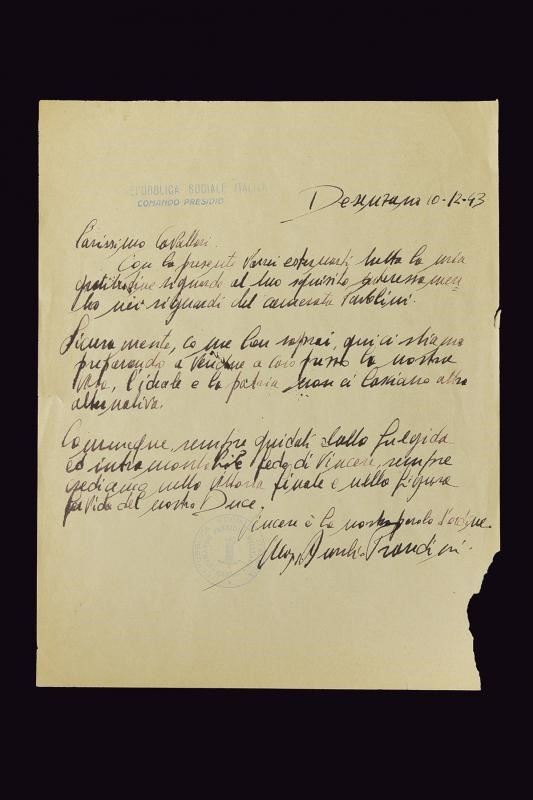 REPUBBLICA SOCIALE ITALIANA
COMANDO PRESIDIO
Desenzano 10-12-43
Carissimo Cavallari.
Con la presente vorrei esternarti tutta la mia
gratitudine riguardo al tuo squisito interessamen-
to nei riguardi del camerata Pavolini.
Sicuramente, come ben saprai, qui ci stiamo
preparando a vendere a caro prezzo la nostra
vita, l'ideale e la patria non ci lasciano altra
alternativa.
Comunque, sempre guidati dalla fulgida
ed intramontabile fede di Vincere, sempre
crediamo nella Vittoria finale e nella figura
del nostro Duce.
Vincere è la nostra parola d'ordine.